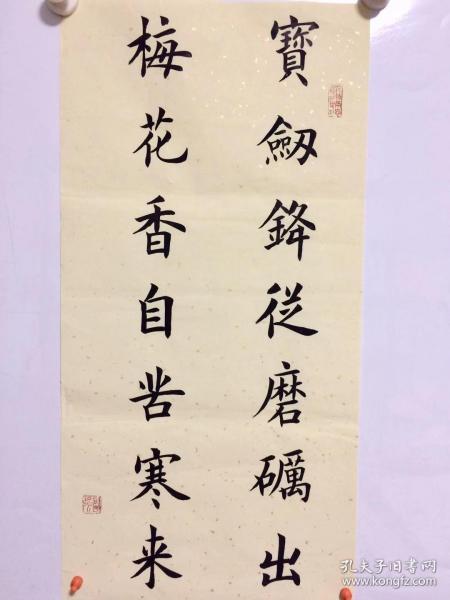 寶劒鋒從磨礪出
梅花香自苦寒来
孔夫子旧书网
www.kongfz.com